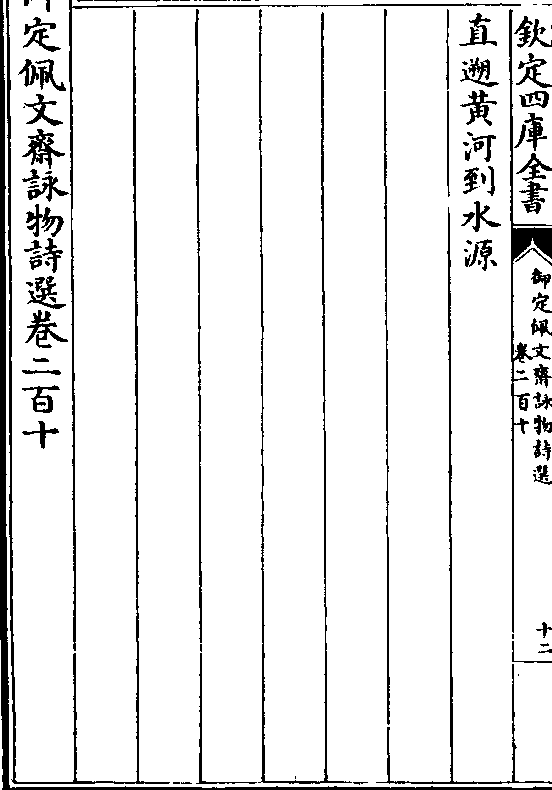 欽定四庫全書
御定佩文齋詠物詩選
卷二百十
十二
直遡黃河到水源
御定佩文齋詠物詩選卷二百十